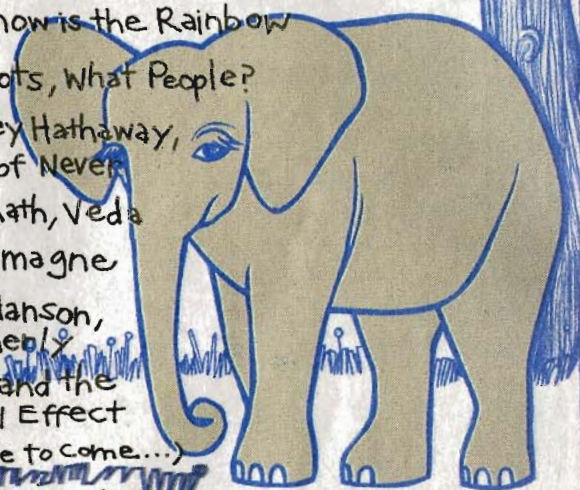 now is the Rainbow
ots, What People?
ey Hathaway,
of Never
ath, Veda
magne
lanson,
ebly
and the
l Effect
e to come....)